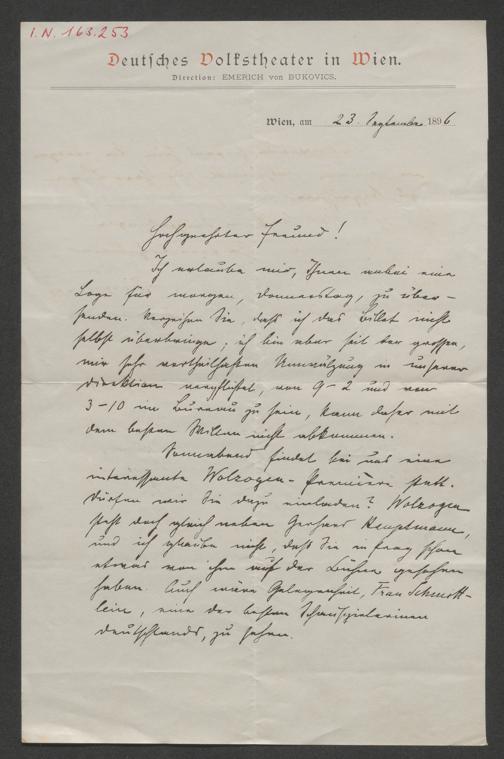 I.N. 163.253
Deutsches Volkstheater in Wien.
Direction: EMERICH von BUKOVICS.
Wien, am 23. September 1896
Hochgeehrter Freund!
Ich erlaube mir, Ihnen anbei eine
Loge für morgen, Donnerstag, zu über-
senden. Verzeihen Sie, daß ich das Billet nicht
selbst überbringe; ich bin aber seit der großen,
mir sehr vortheilhaften Umwälzung in unserer
Direktion verpflichtet, von 9-2 und von
3-10 im Bureau zu sein, kann daher mit
dem besten Willen nicht abkommen.
Sonnabend findet bei uns eine
interessante Wolzogen-Premiere statt.
Dürfen wir Sie dazu einladen? Wolzogen
steht doch gleich neben Gerhart Hauptmann,
und ich glaube nicht, daß Sie in Prag schon
etwas von ihm auf der Bühne gesehen
haben. Auch wäre Gelegenheit, Frau Schmitt-
lein, eine der besten Schauspielerinen
Deutschlands, zu sehen.